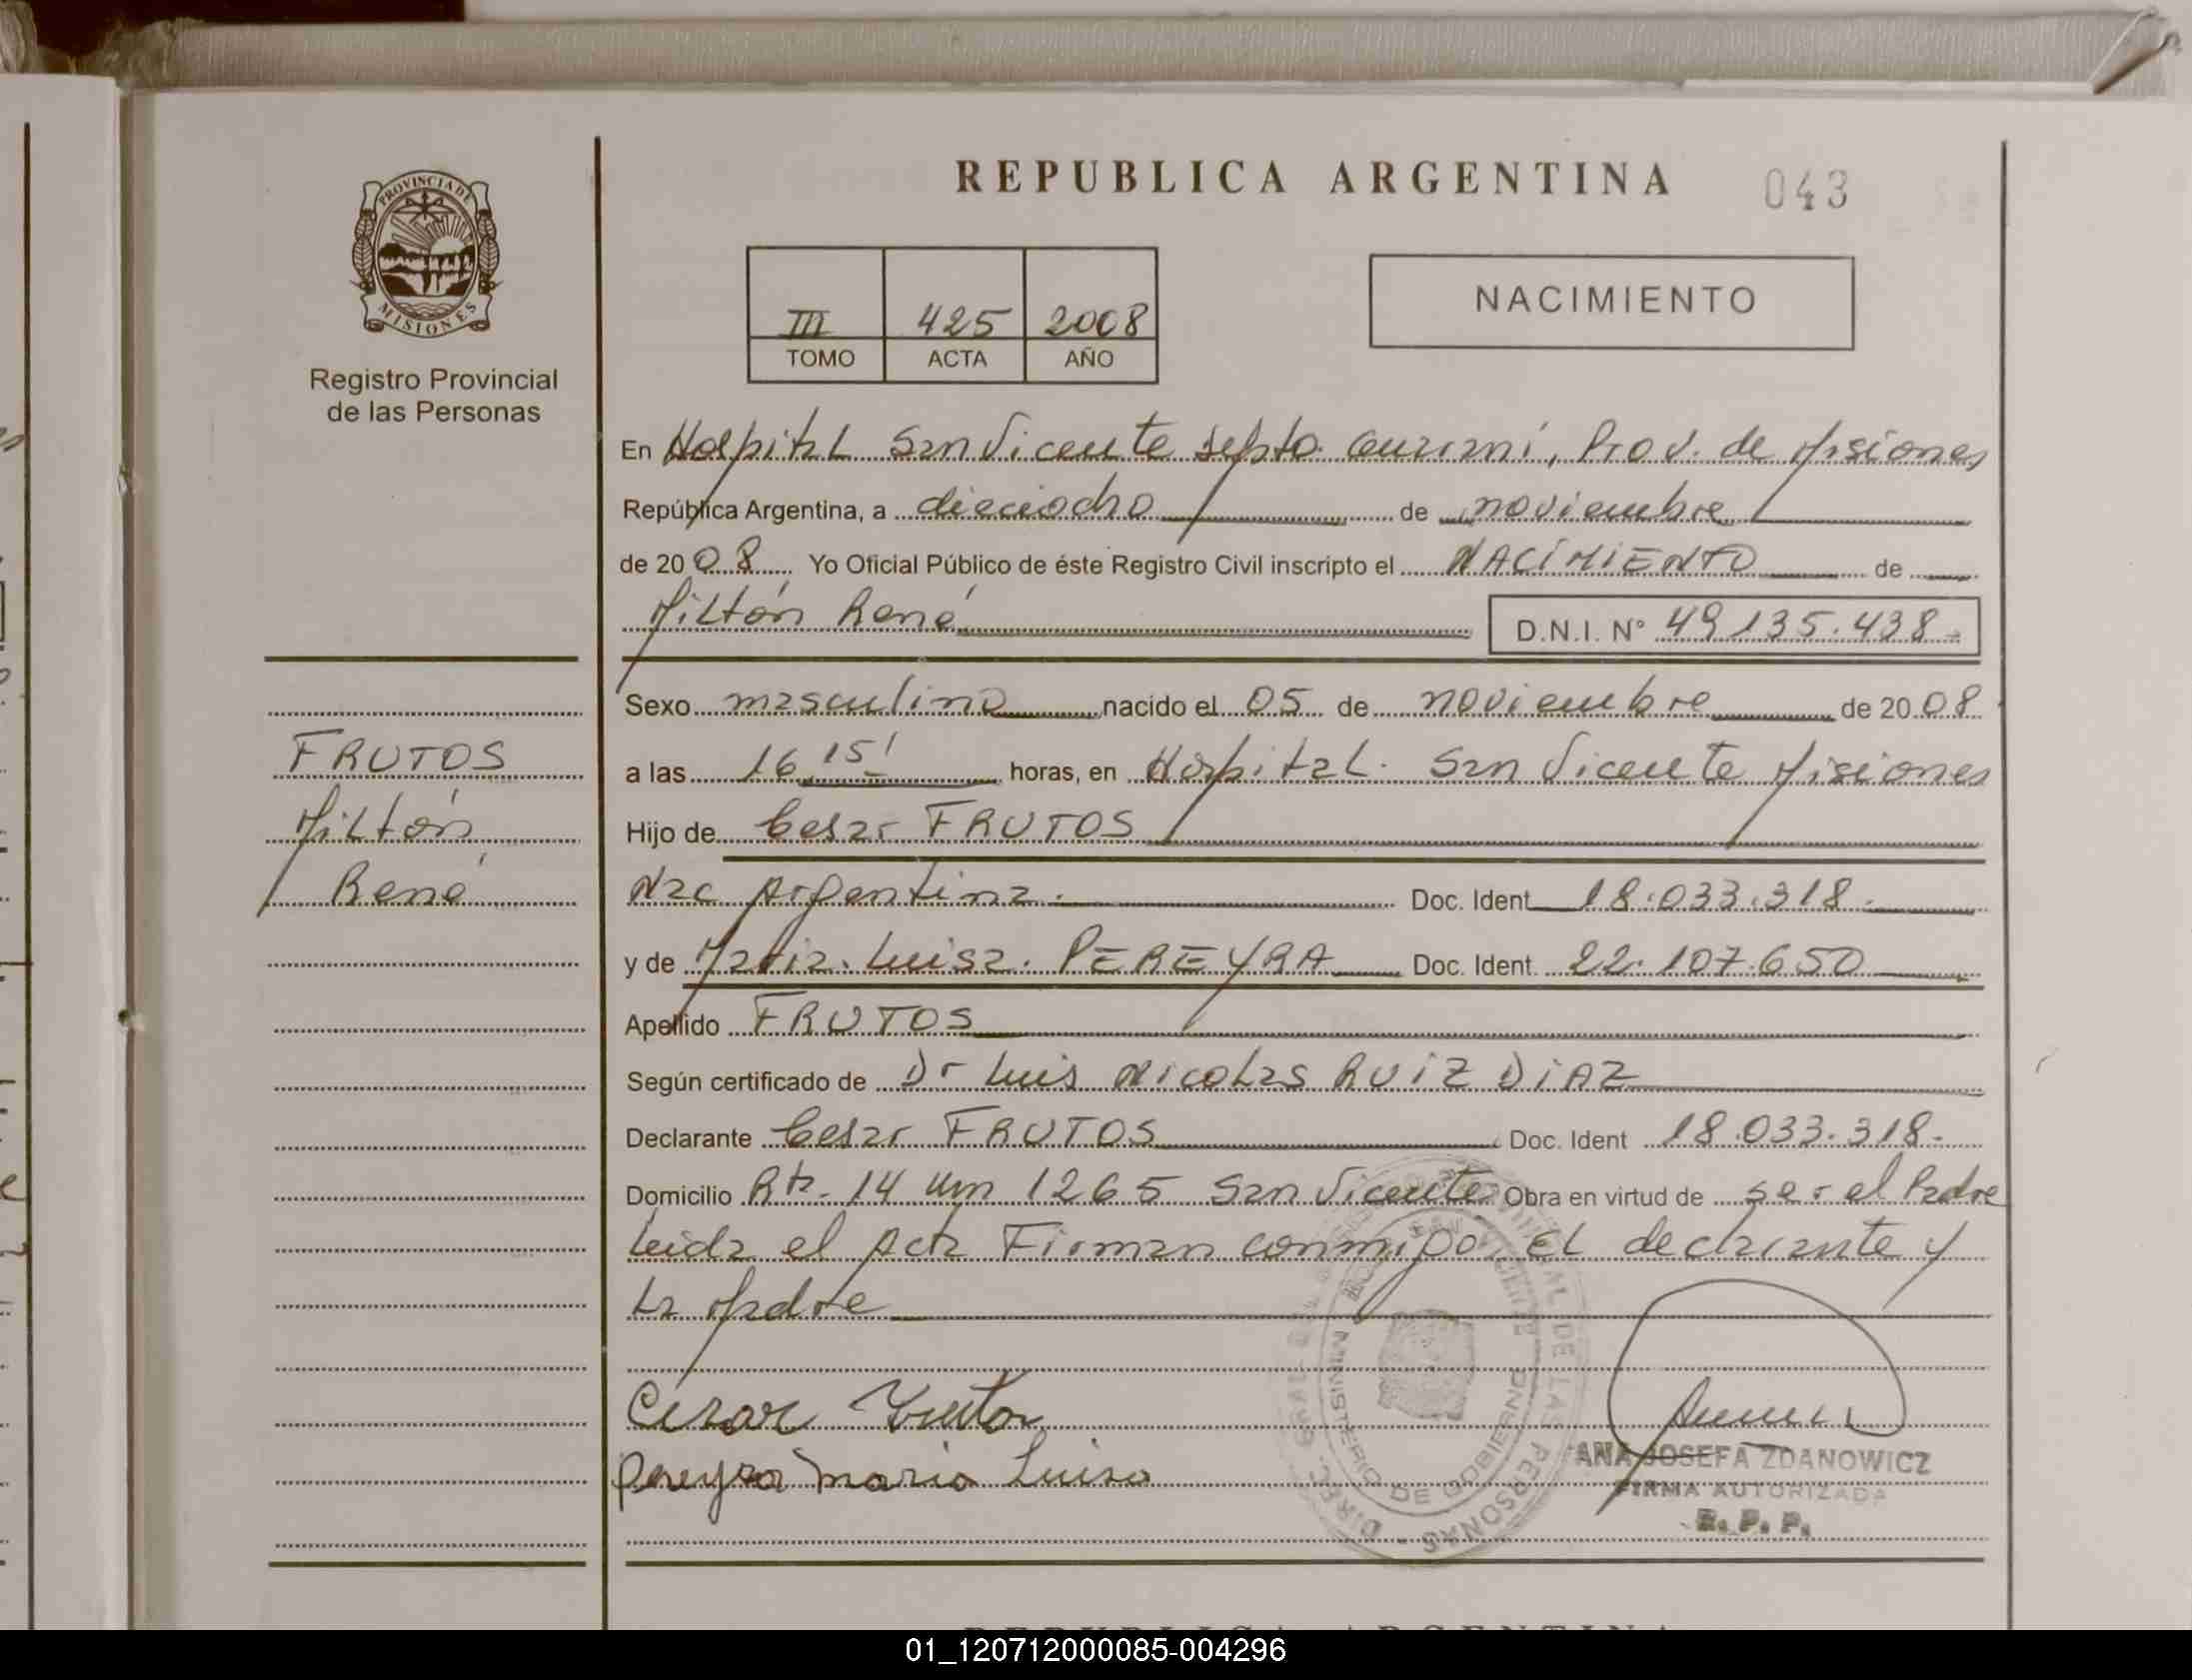 REPUBLICA ARGENTINA 043
PROVINCIA DE
MISIONES
Registro Provincial
de las Personas
III 425 2008
TOMO ACTA AÑO
NACIMIENTO
En Hospital San Vicente Depto. Guaraní, Prov. de Misiones
República Argentina, a dieciocho de noviembre
de 2008 Yo Oficial Público de éste Registro Civil inscripto el NACIMIENTO de
Miltón René D.N.I. Nº 49.135.438
Sexo masculino nacido el 05 de noviembre de 2008
a las 16,15' horas, en Hospital San Vicente Misiones
Hijo de Cesar FRUTOS
Nac Argentina. Doc. Ident 18.033.318.
y de Maria Luisa PEREYRA Doc. Ident. 22.107.650
Apellido FRUTOS
Según certificado de Dr Luis Nicolas RUIZ DIAZ
Declarante Cesar FRUTOS Doc. Ident 18.033.318.
Domicilio Rta. 14 Km 1265 San Vicente Obra en virtud de ser el Padre
Leida el Acta Firman conmigo El declarante y
La Madre
FRUTOS
Miltón
René
Cesar Frutos
Pereyra maria Luisa
MINISTERIO DE GOBIERNO
PROVINCIAL DE LAS PERSONAS
ANA JOSEFA ZDANOWICZ
FIRMA AUTORIZADA
R. P. P.
01_120712000085-004296